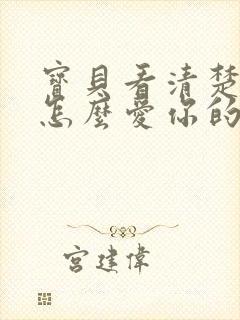 寶貝看清楚
怎麼愛你的
宮建偉